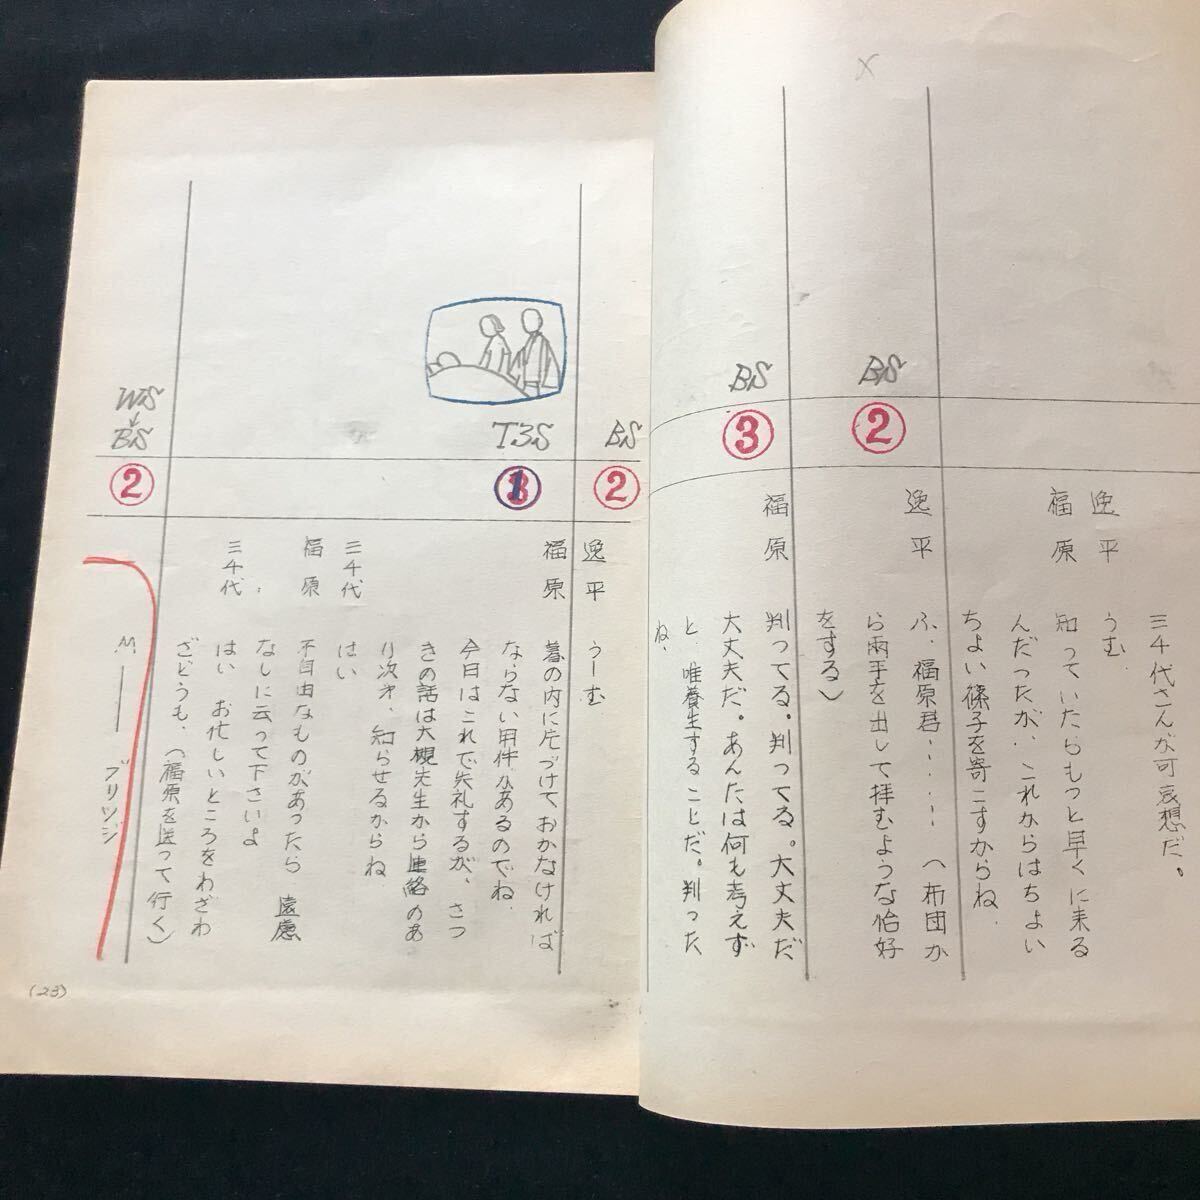 三千代さんが可哀想だ。
逸平 うむ
福原 知っていたらもっと早くに来る
んだったが、これからはちょい
ちょい篠子を寄こすからね、
×
BS
②
逸平 ふ、福原君‥‥‥(布団か
ら両手を出して拝むような恰好
をする)
BS
③
福原 判ってる。判ってる。大丈夫だ
大丈夫だ。あんたは何も考えず
と、唯養生することだ。判った
ね、
BS
②
逸平 うーむ
T3S
福原 暮の内に片づけておかなければ
ならない用件があるのでね、
今日はこれで失礼するが、さつ
きの話は大槻先生から連絡のあ
り次才、知らせるからね
三千代 はい
福原 不自由なものがあったら 遠慮
なしに云って下さいよ
三千代 はい お忙しいところをわざわ
ざどうも、(福原を送って行く)
WS
↓
BS
②
M. ―― ブリッジ
(23)